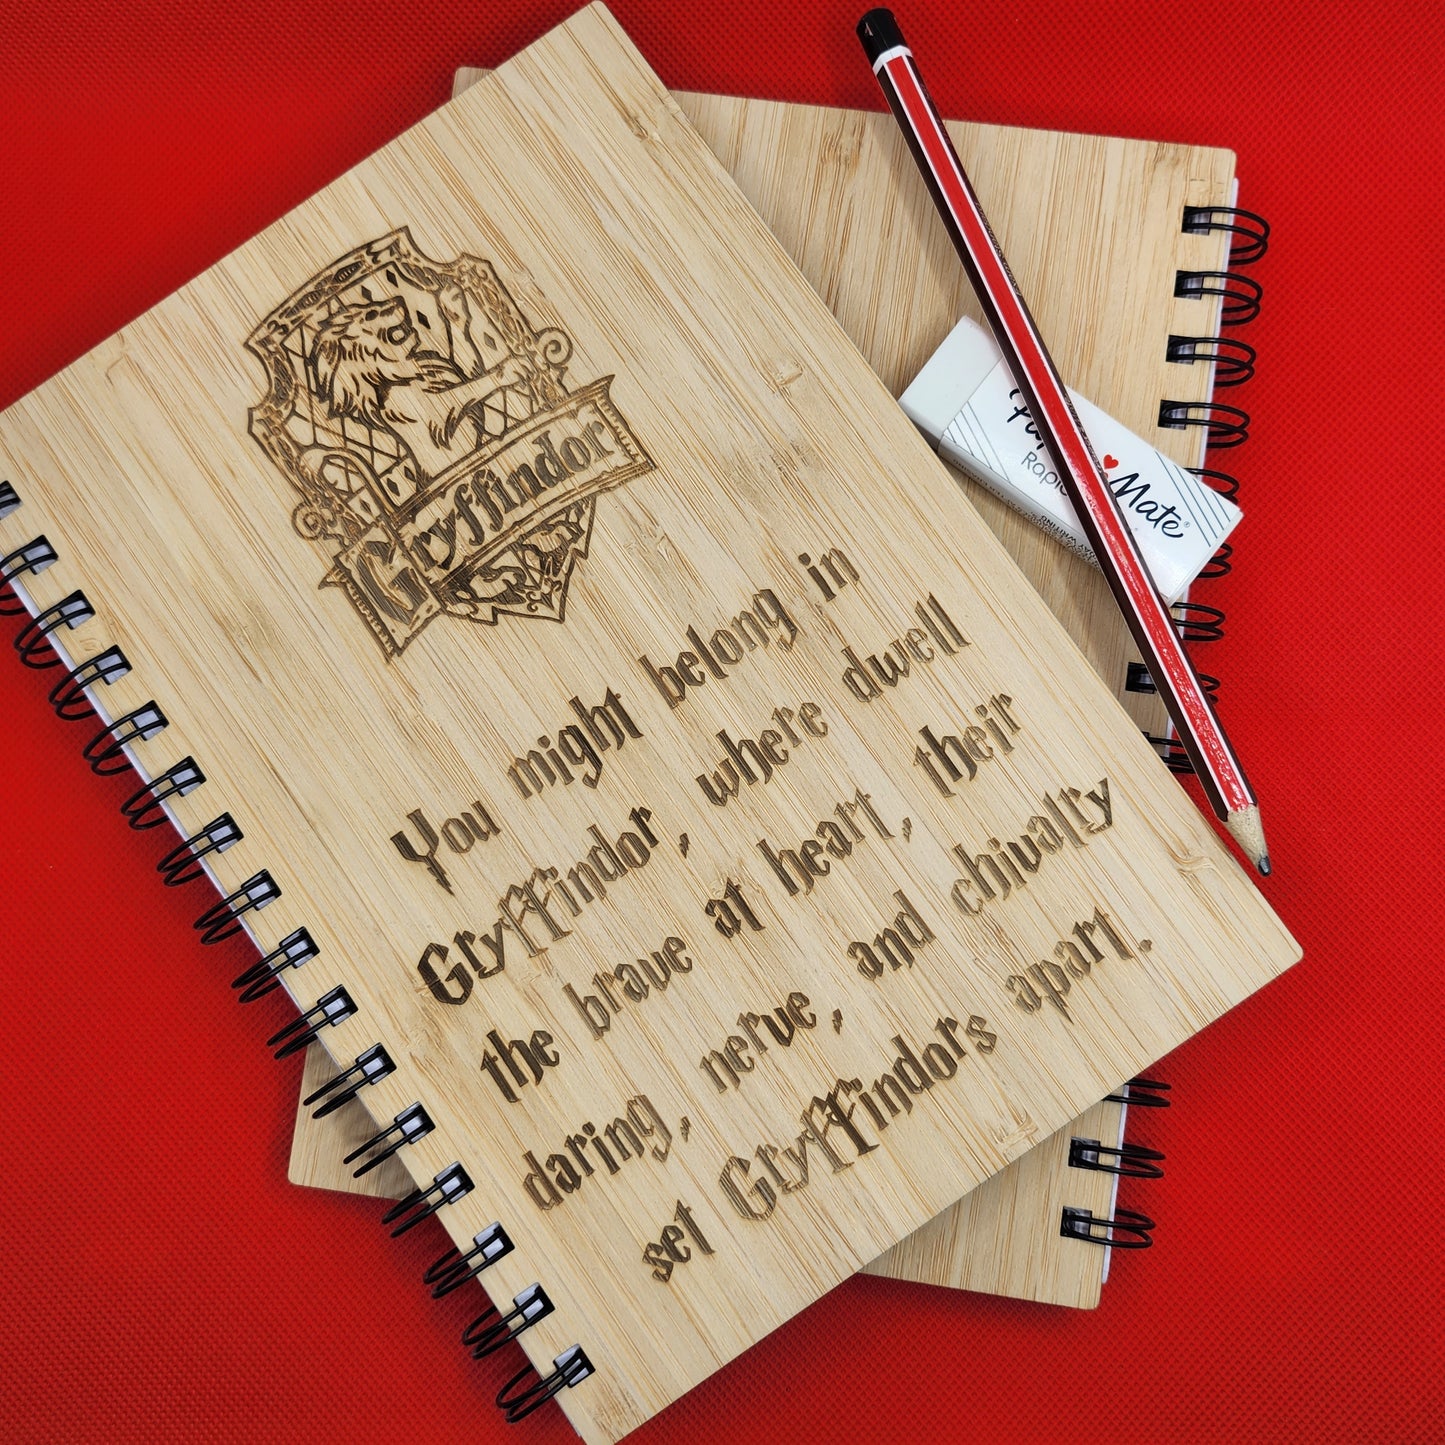 Gryffindor
You might belong in
Gryffindor, where dwell
the brave at heart, their
daring, nerve, and chivalry
set Gryffindors apart.
Mate